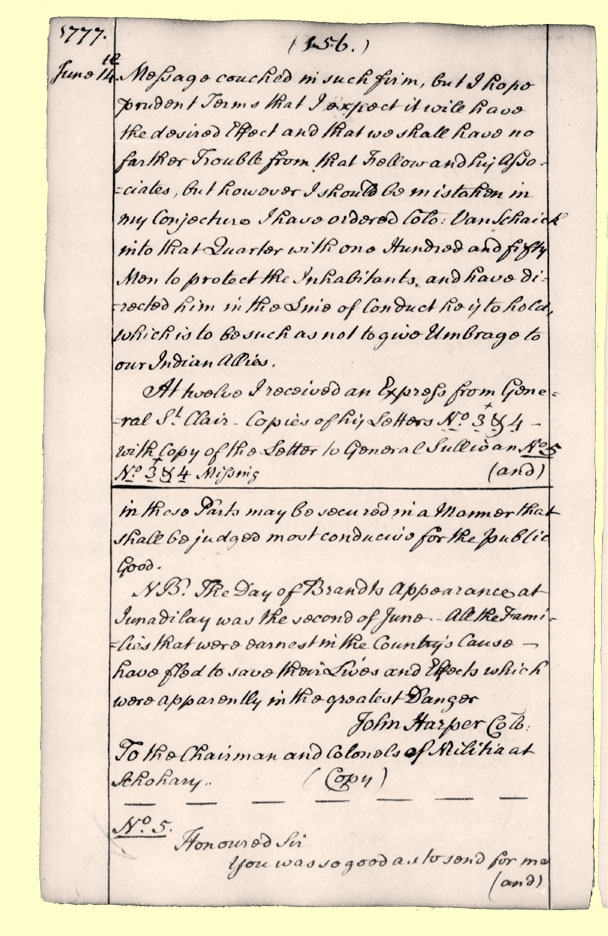 1777.
(156.)
June 14th. Message couched in such firm, but I hope
prudent Terms that I expect it will have
the desired Effect and that we shall have no
farther Trouble from that Fellow and his Asso-
-ciates, but however I should be mistaken in
my Conjecture I have ordered Colo: Van Schaick
into that Quarter with one Hundred and fifty
Men to protect the Inhabitants, and have di-
-rected him in the Line of Conduct he is to hold,
which is to be such as not to give Umbrage to
our Indian Allies.
At twelve I received an Express from Gene-
-ral St. Clair - Copies of his Letters No. 3 & 4 -
with Copy of the Letter to General Sullivan No. 5
No. 3 & 4 Missing
(and)
in these Parts may be secured in a Manner that
shall be judged most conducive for the public
Good.
NB. The Day of Brandts Appearance at
Iunadilay was the second of June - All the Fami-
-lies that were earnest in the Country's Cause -
have fled to save their Lives and Effects which
were apparently in the greatest Danger
John Harper Colo.
To the Chairman and Colonels of Militia at
Skohary..
(Copy)
No. 5.
Honoured Sir
You was so good as to send for me
(and)